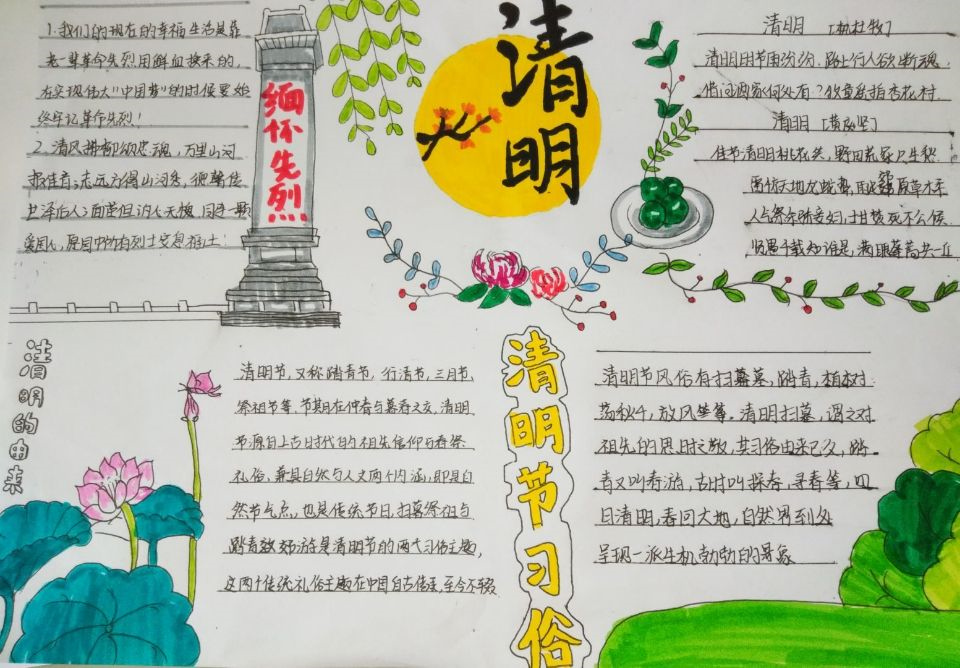 1.我们的现在的幸福生活是靠
老一辈革命先烈用鲜血换来的,
在实现伟大"中国梦"的时候要始
终牢记革命先烈!
2.清风 忠魂,万里山河
佳音;
后人;
爱国心,愿 所有烈士安息福土!
缅怀先烈
清明
清明 [杜牧]
清明时节雨纷纷,路上行人欲断魂
借问酒家何处有?牧童遥指杏花村
清明 [黄庭坚]
佳节清明桃花笑,野田荒冢只生愁
雷惊天地龙蛇蛰,雨 原草木柔
人乞祭余骄妾妇,甘焚死不公候
贤愚千载知谁是,满眼蓬蒿共一丘
清明的由来
清明节,又称踏青节,行清节,三月节,
祭祖节等,节期在仲春与暮春之交,清明
节源自上古时代的祖先信仰与春祭
礼俗,兼具自然与人文两个内涵,即是自
然节气点,也是传统节日,扫墓祭祖与
踏青 郊游是清明节的两 习俗主题,
这两个传统礼俗主题在中国自古传承,至今不辍
清明节习俗
清明节风俗有扫 墓,踏青,植树
荡秋千,放风筝等。清明扫墓,谓之对
祖先的思时敬,其习俗由来已久,踏
青又叫春游,古时叫探春,寻春等,四
月清明,春回大地,自然界到处
呈现一派生机勃勃的景象